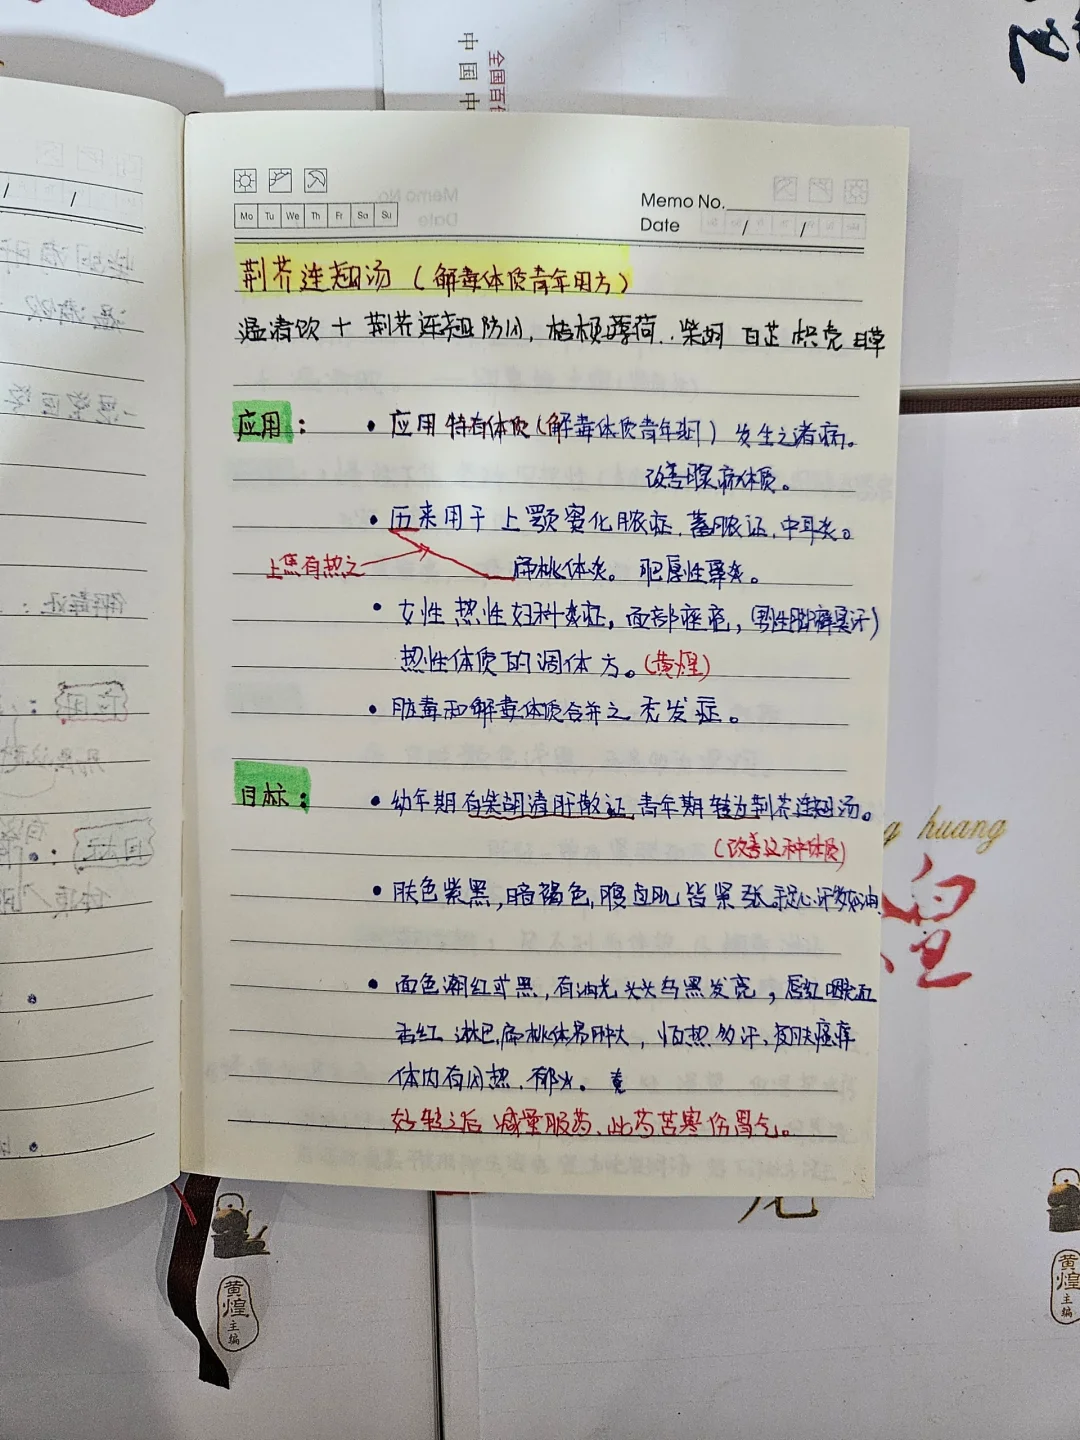 中国中
全国百
Mo Tu We Th Fr Sa Su
Memo No.
Date / /
荆芥连翘汤（解毒体质青年用方）
温清饮＋荆芥连翘防风，桔梗薄荷．柴胡 白芷 枳壳 甘草
应用：
• 应用特有体质（解毒体质青年期）发生之诸病。
改善腺病体质。
• 历来用于上颚窦化脓症，蓄脓证，中耳炎。
上焦有热之
扁桃体炎。肥厚性鼻炎。
• 女性热性妇科炎症，面部痤疮，（男性脚癣臭汗）
热性体质的调体方。（黄煌）
• 脏毒和解毒体质合并之 无发症。
目标：
• 幼年期有柴胡清肝散证，青年期转为荆芥连翘汤。
（改善这种体质）
• 肤色紫黑，暗褐色，腹直肌皆紧张 手足心汗多如油
• 面色潮红或黑，有油光 头发乌黑发亮，唇红咽红
舌红 淋巴，扁桃体易肿大，怕热多汗，皮肤瘙痒
体内有风热．郁火。
好转之后 减量服药、此药苦寒伤胃气。
huang
黄煌
主编
黄煌
主编